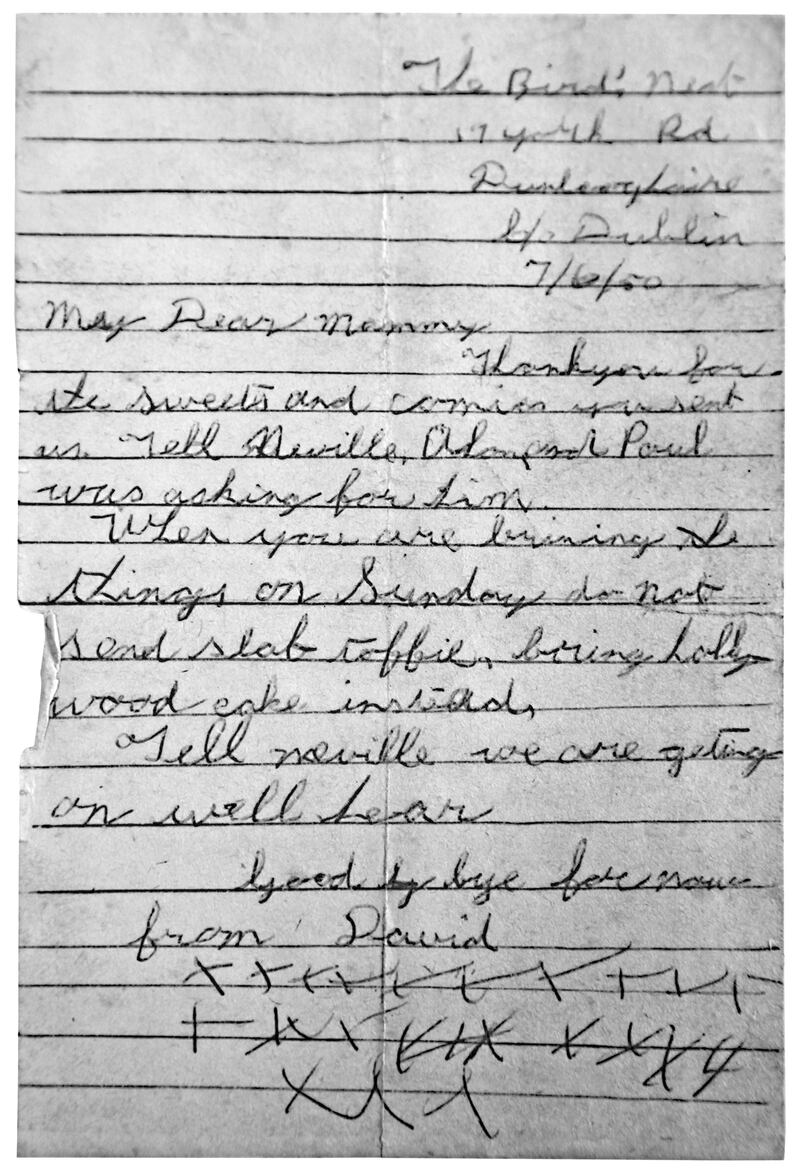 The Bird's Nest
19 York Rd
Dunlaoghaire
Co Dublin
7/6/50
My Dear Mammy
Thankyou for
the sweets and comics you sent
us. Tell Neville, Paul
was asking for him.
When you are brining the
things on Sunday do not
send slab toffie, bring holly
wood cake instead,
Tell neville we are geting
on well hear
Good by bye for now
from David
x x x x x x x x x x
x x x x x x x x x x
x x x